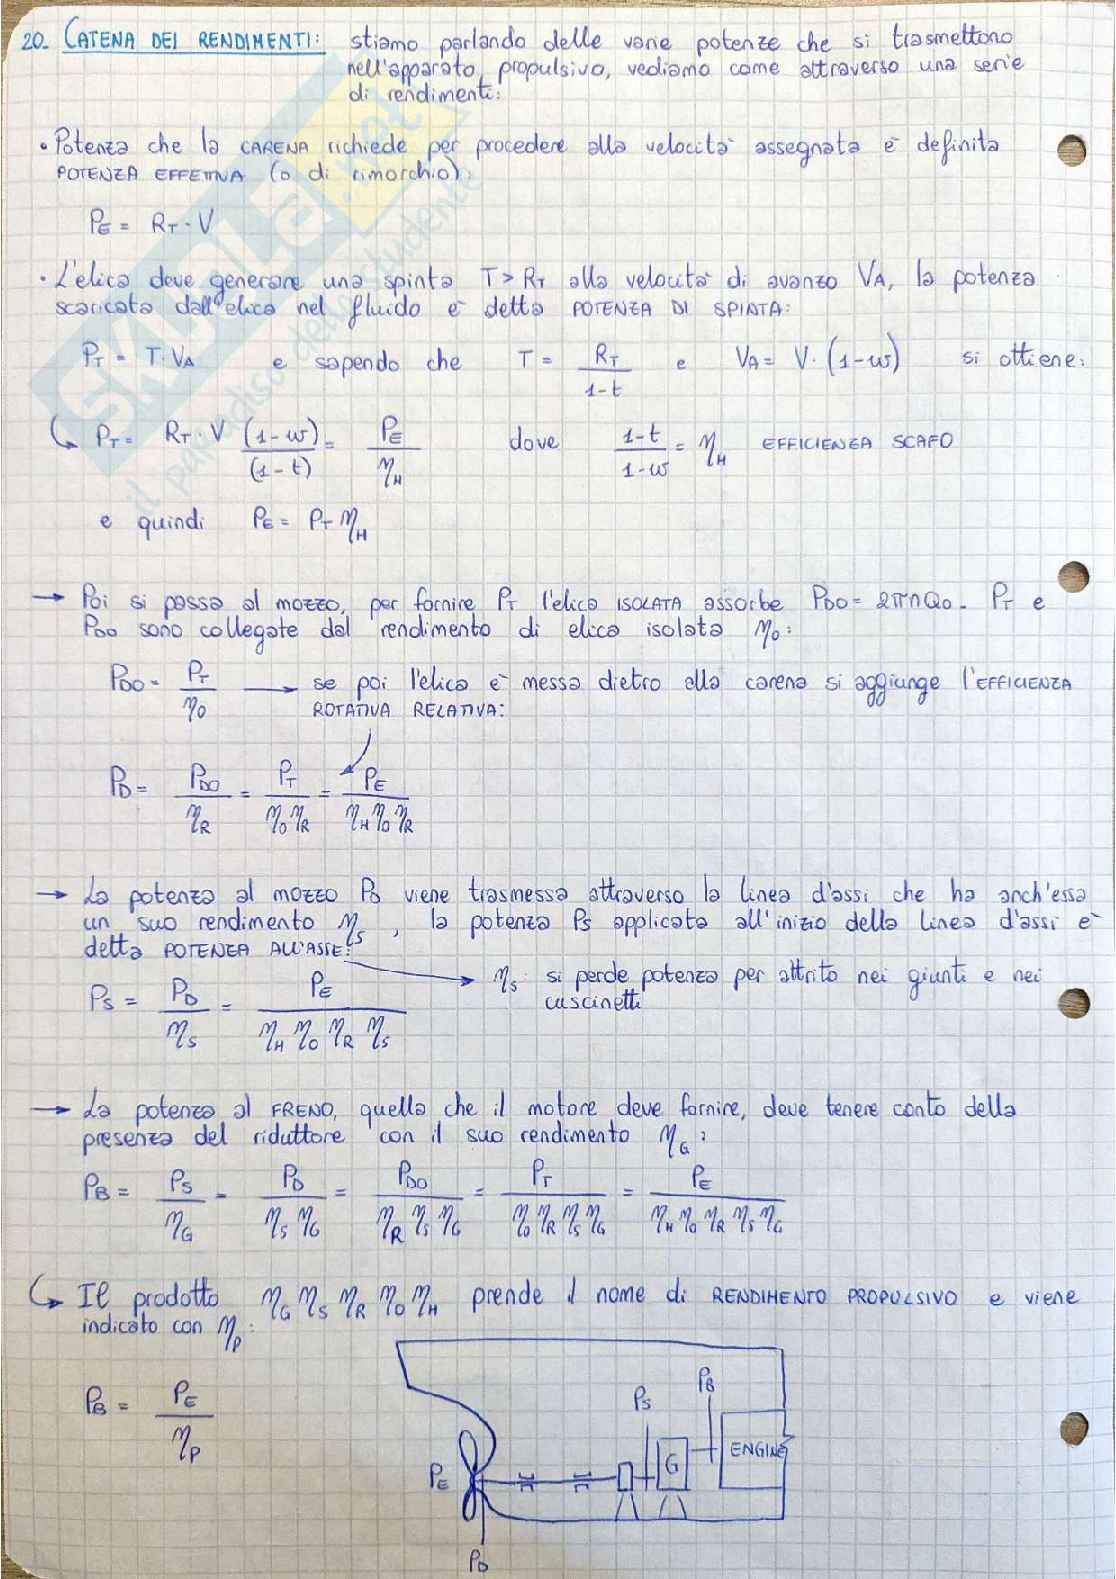 20. CATENA DEI RENDIMENTI: stiamo parlando delle varie potenze che si trasmettono
nell'apparato propulsivo, vediamo come attraverso una serie
di rendimenti:
• Potenza che la CARENA richiede per procedere alla velocità assegnata è definita
POTENZA EFFETTIVA (o di rimorchio):
P_E = R_T · V
• L'elica deve generare una spinta T > R_T alla velocità di avanzo V_A, la potenza
scaricata dall'elica nel fluido è detta POTENZA DI SPINTA:
P_T = T · V_A e sapendo che T = R_T / (1-t) e V_A = V · (1-w) si ottiene:
↳ P_T = R_T · V (1-w)/(1-t) = P_E / η_H dove (1-t)/(1-w) = η_H EFFICIENZA SCAFO
e quindi P_E = P_T η_H
→ Poi si passa al mozzo, per fornire P_T l'elica ISOLATA assorbe P_DO = 2πnQ_0. P_T e
P_DO sono collegate dal rendimento di elica isolata η_0:
P_DO = P_T / η_0 → se poi l'elica è messa dietro alla carena si aggiunge l'EFFICIENZA
ROTATIVA RELATIVA:
P_D = P_DO / η_R = P_T / (η_0 η_R) = P_E / (η_H η_0 η_R)
→ La potenza al mozzo P_D viene trasmessa attraverso la linea d'assi che ha anch'essa
un suo rendimento η_S, la potenza P_S applicata all'inizio della linea d'assi è
detta POTENZA ALL'ASSE:
→ η_S: si perde potenza per attrito nei giunti e nei
cuscinetti
P_S = P_D / η_S = P_E / (η_H η_0 η_R η_S)
→ La potenza al FRENO, quella che il motore deve fornire, deve tenere conto della
presenza del riduttore con il suo rendimento η_G:
P_B = P_S / η_G = P_D / (η_S η_G) = P_DO / (η_R η_S η_G) = P_T / (η_0 η_R η_S η_G) = P_E / (η_H η_0 η_R η_S η_G)
↳ Il prodotto η_G η_S η_R η_0 η_H prende il nome di RENDIMENTO PROPULSIVO e viene
indicato con η_P:
P_B = P_E / η_P
P_B
P_S
ENGINE
G
P_E
P_D
SKUOLA.net
il paradiso dello studente